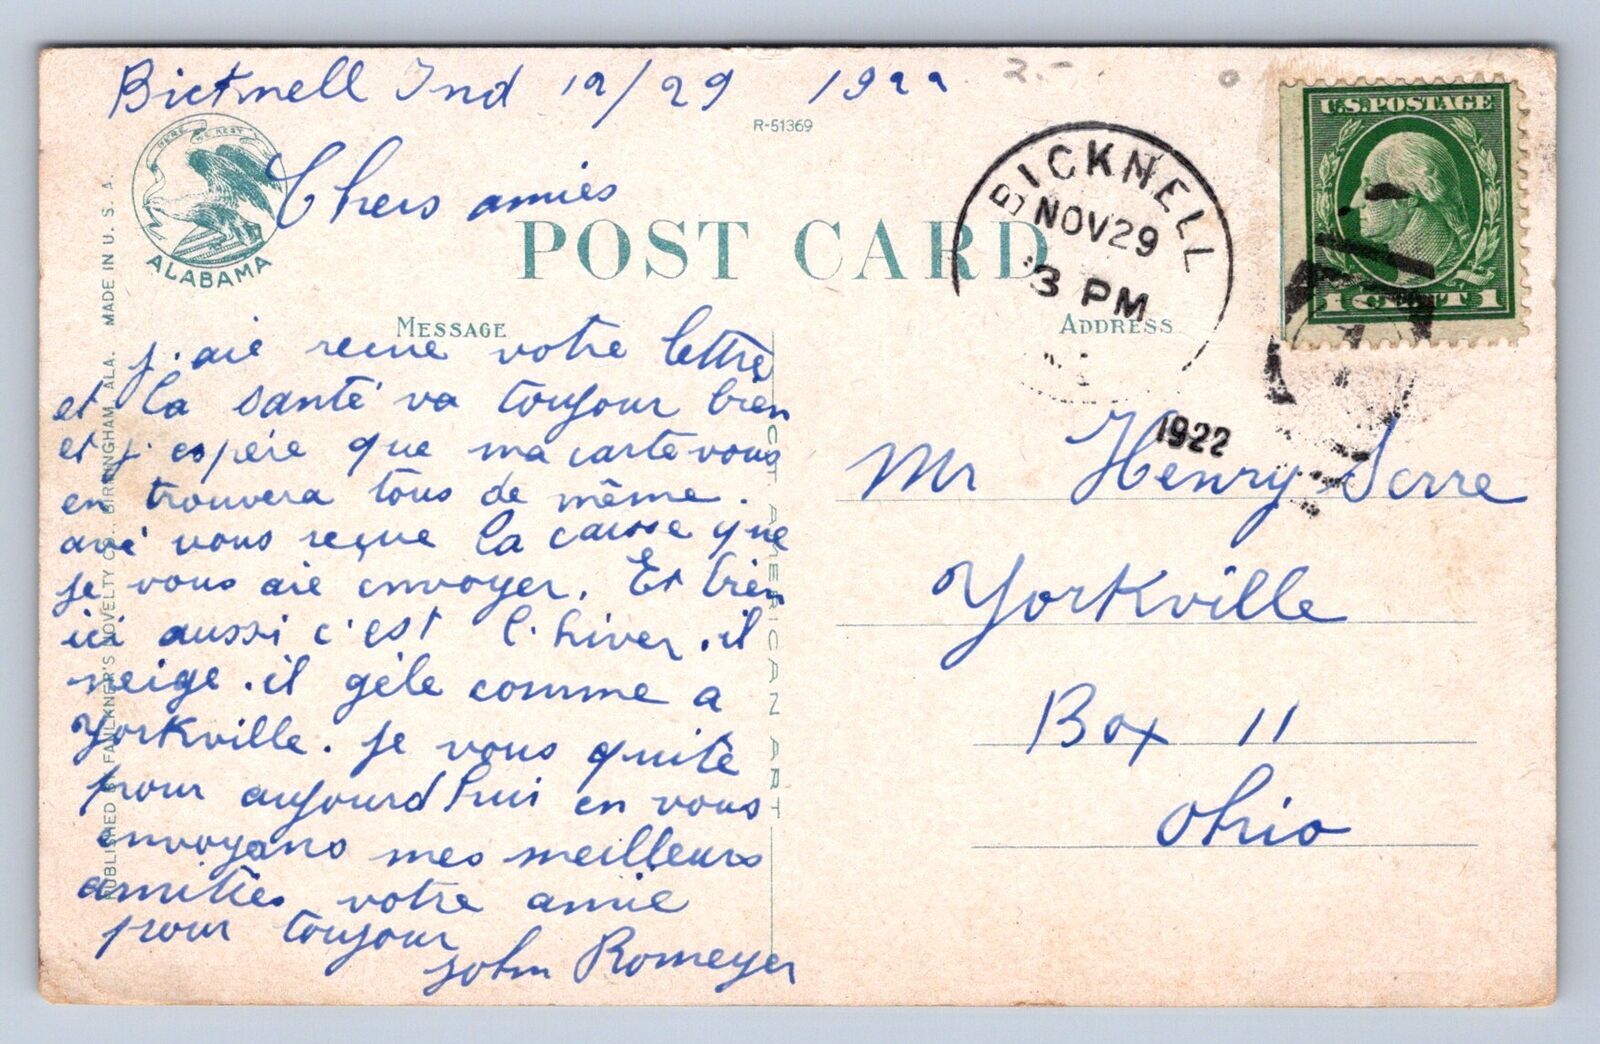 Bicknell Ind 12/29 1922
2.-
R-51369
HERE WE REST
ALABAMA
Chers amies
POST CARD
BICKNELL
NOV 29
3 PM
1922
U.S. POSTAGE
1 CENT 1
MESSAGE
ADDRESS
j. aie recue votre lettre
et la santé va toujour bien
et j. espére que ma carte vous
en trouvera tous de même.
avé vous reçue la caisse que
je vous aie envoyer. Et bien
ici aussi c'est l'hiver. il
neige. il gèle comme a
Yorkville. je vous quite
pour aujourd'hui en vous
envoyans mes meilleurs
amities votre amie
pour toujour
John Romeyer
Mr Henry Serre
Yorkville
Box 11
Ohio
PUBLISHED BY FAULKNER'S NOVELTY CO., BIRMINGHAM, ALA. MADE IN U. S. A.
AMERICAN ART